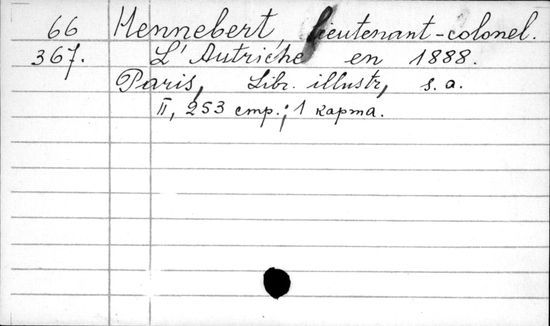 66 Hennebert, lieutenant-colonel.
367. L'Autriche en 1888.
Paris, Libr. illustr., s. a.
II, 253 стр.; 1 карта.